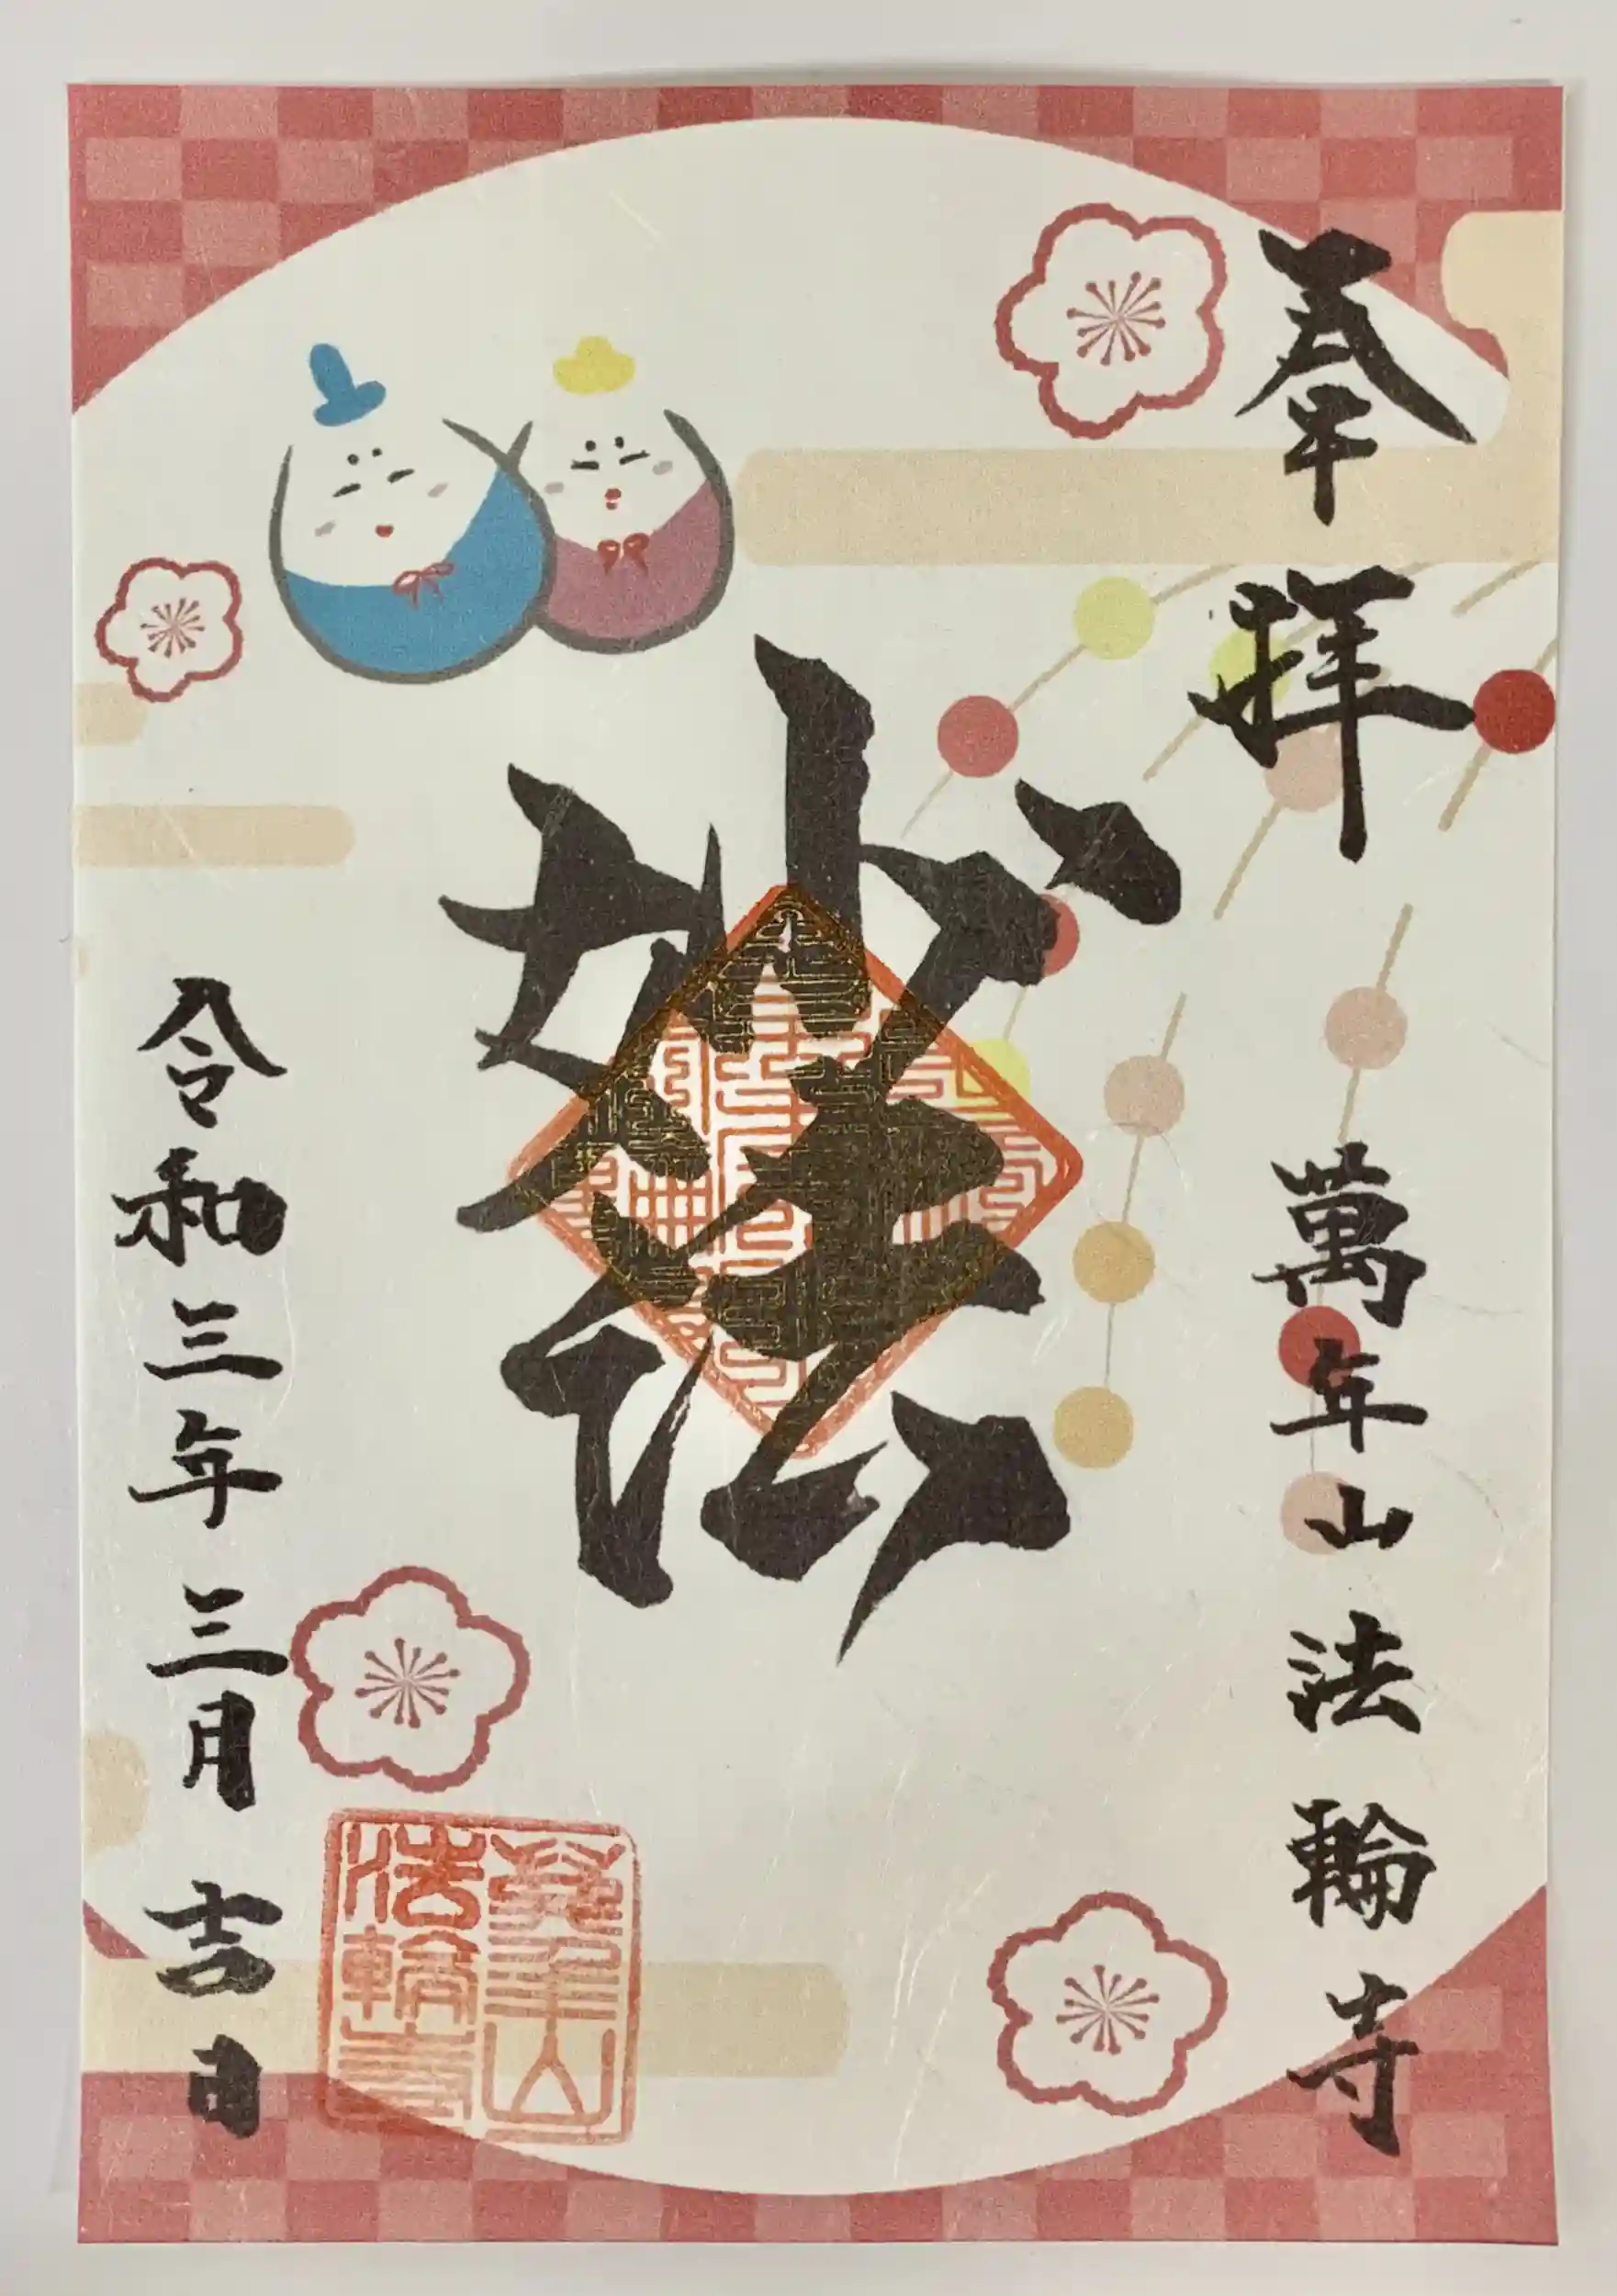 奉拝
萬年山法輪寺
妙法
令和三年三月吉日
萬年山
法輪寺